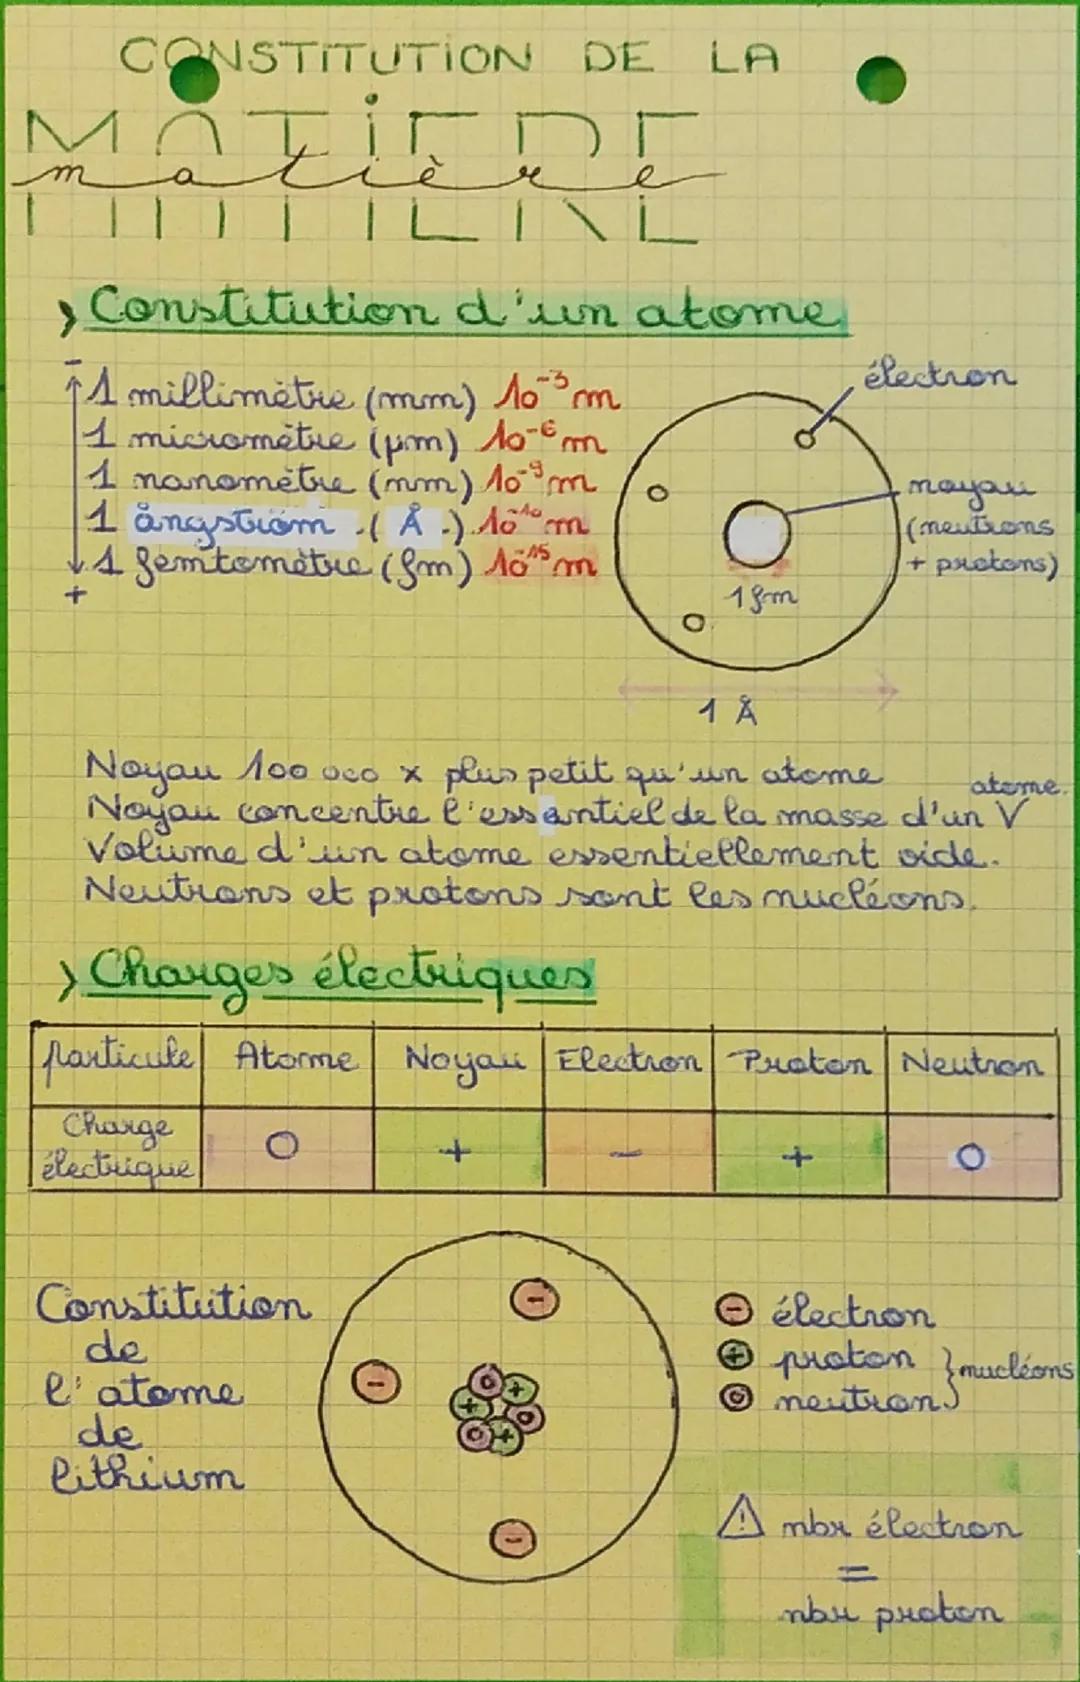 CONSTITUTION DE LA
MATIERE
matière
Constitution d'un atome
-
1 millimètre (mm) 10⁻³ m
1 micromètre (µm) 10⁻⁶ m
1 nanomètre (nm) 10⁻⁹ m
1 ångström (Å) 10⁻¹⁰ m
1 femtomètre (fm) 10⁻¹⁵ m
+
électron
noyau
(neutrons
+ protons)
1 fm
1 Å
Noyau 100 000 x plus petit qu'un atome
atome.
Noyau concentre l'essentiel de la masse d'un V
Volume d'un atome essentiellement vide.
Neutrons et protons sont les nucléons.
Charges électriques
particule Atome Noyau Electron Proton Neutron
Charge
électrique O + - + O
Constitution
de
l'atome
de
lithium
- électron
+ proton
o neutron
} nucléons
⚠ nbr électron
=
nbr proton